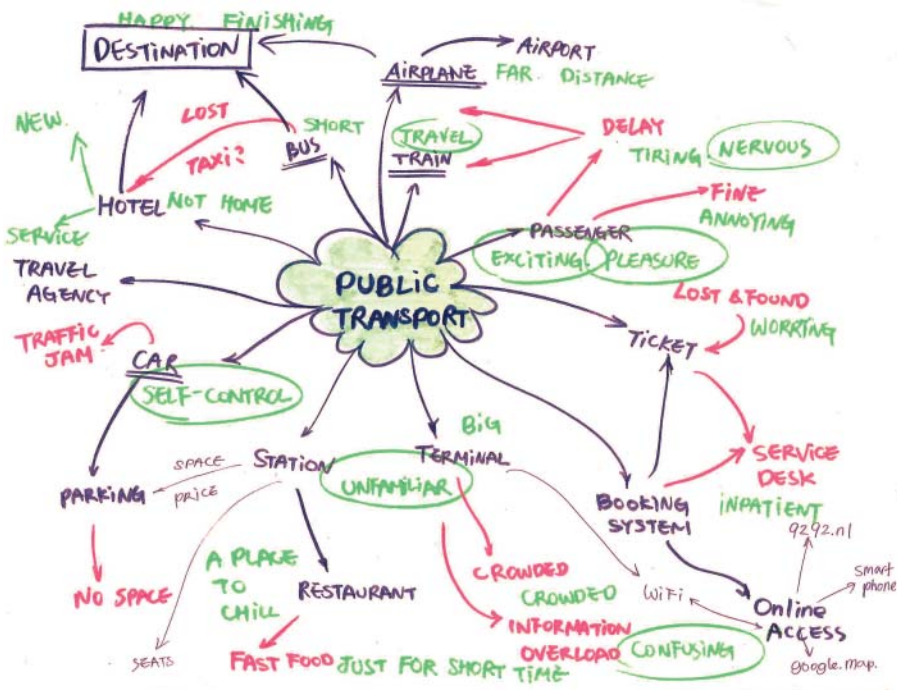 HAPPY. FINISHING
DESTINATION
AIRPORT
AIRPLANE FAR DISTANCE
LOST
TAXI?
SHORT
BUS
TRAVEL
TRAIN
DELAY
TIRING. NERVOUS
FINE
ANNOYING
NEW.
HOTEL NOT HOME
SERVICE
PASSENGER
EXCITING. PLEASURE
TRAVEL
AGENCY
PUBLIC
TRANSPORT
LOST & FOUND
WORRING
TICKET
TRAFFIC
JAM
CAR
SELF-CONTROL
BIG
STATION
TERMINAL
UNFAMILIAR
SPACE
PRICE
PARKING
SERVICE
DESK
INPATIENT
BOOKING
SYSTEM
9292.nl
smart
phone
A PLACE
TO
CHILL
RESTAURANT
NO SPACE
CROWDED
CROWDED
WiFi
Online
ACCESS
INFORMATION
OVERLOAD CONFUSING
SEATS
FAST FOOD JUST FOR SHORT TIME
google.map.